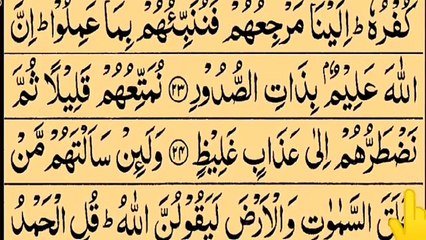 كُفْرُهٗ ؕ اِلَيْنَا مَرْجِعُهُمْ فَنُنَبِّئُهُمْ بِمَا عَمِلُوْا ؕ اِنَّ
اللّٰهَ عَلِيْمٌۢ بِذَاتِ الصُّدُوْرِ ﴿۲۳﴾ نُمَتِّعُهُمْ قَلِيْلًا ثُمَّ
نَضْطَرُّهُمْ اِلٰى عَذَابٍ غَلِيْظٍ ﴿۲۴﴾ وَلَئِنْ سَاَلْتَهُمْ مَّنْ
خَلَقَ السَّمٰوٰتِ وَالْاَرْضَ لَيَقُوْلُنَّ اللّٰهُ ؕ قُلِ الْحَمْدُ